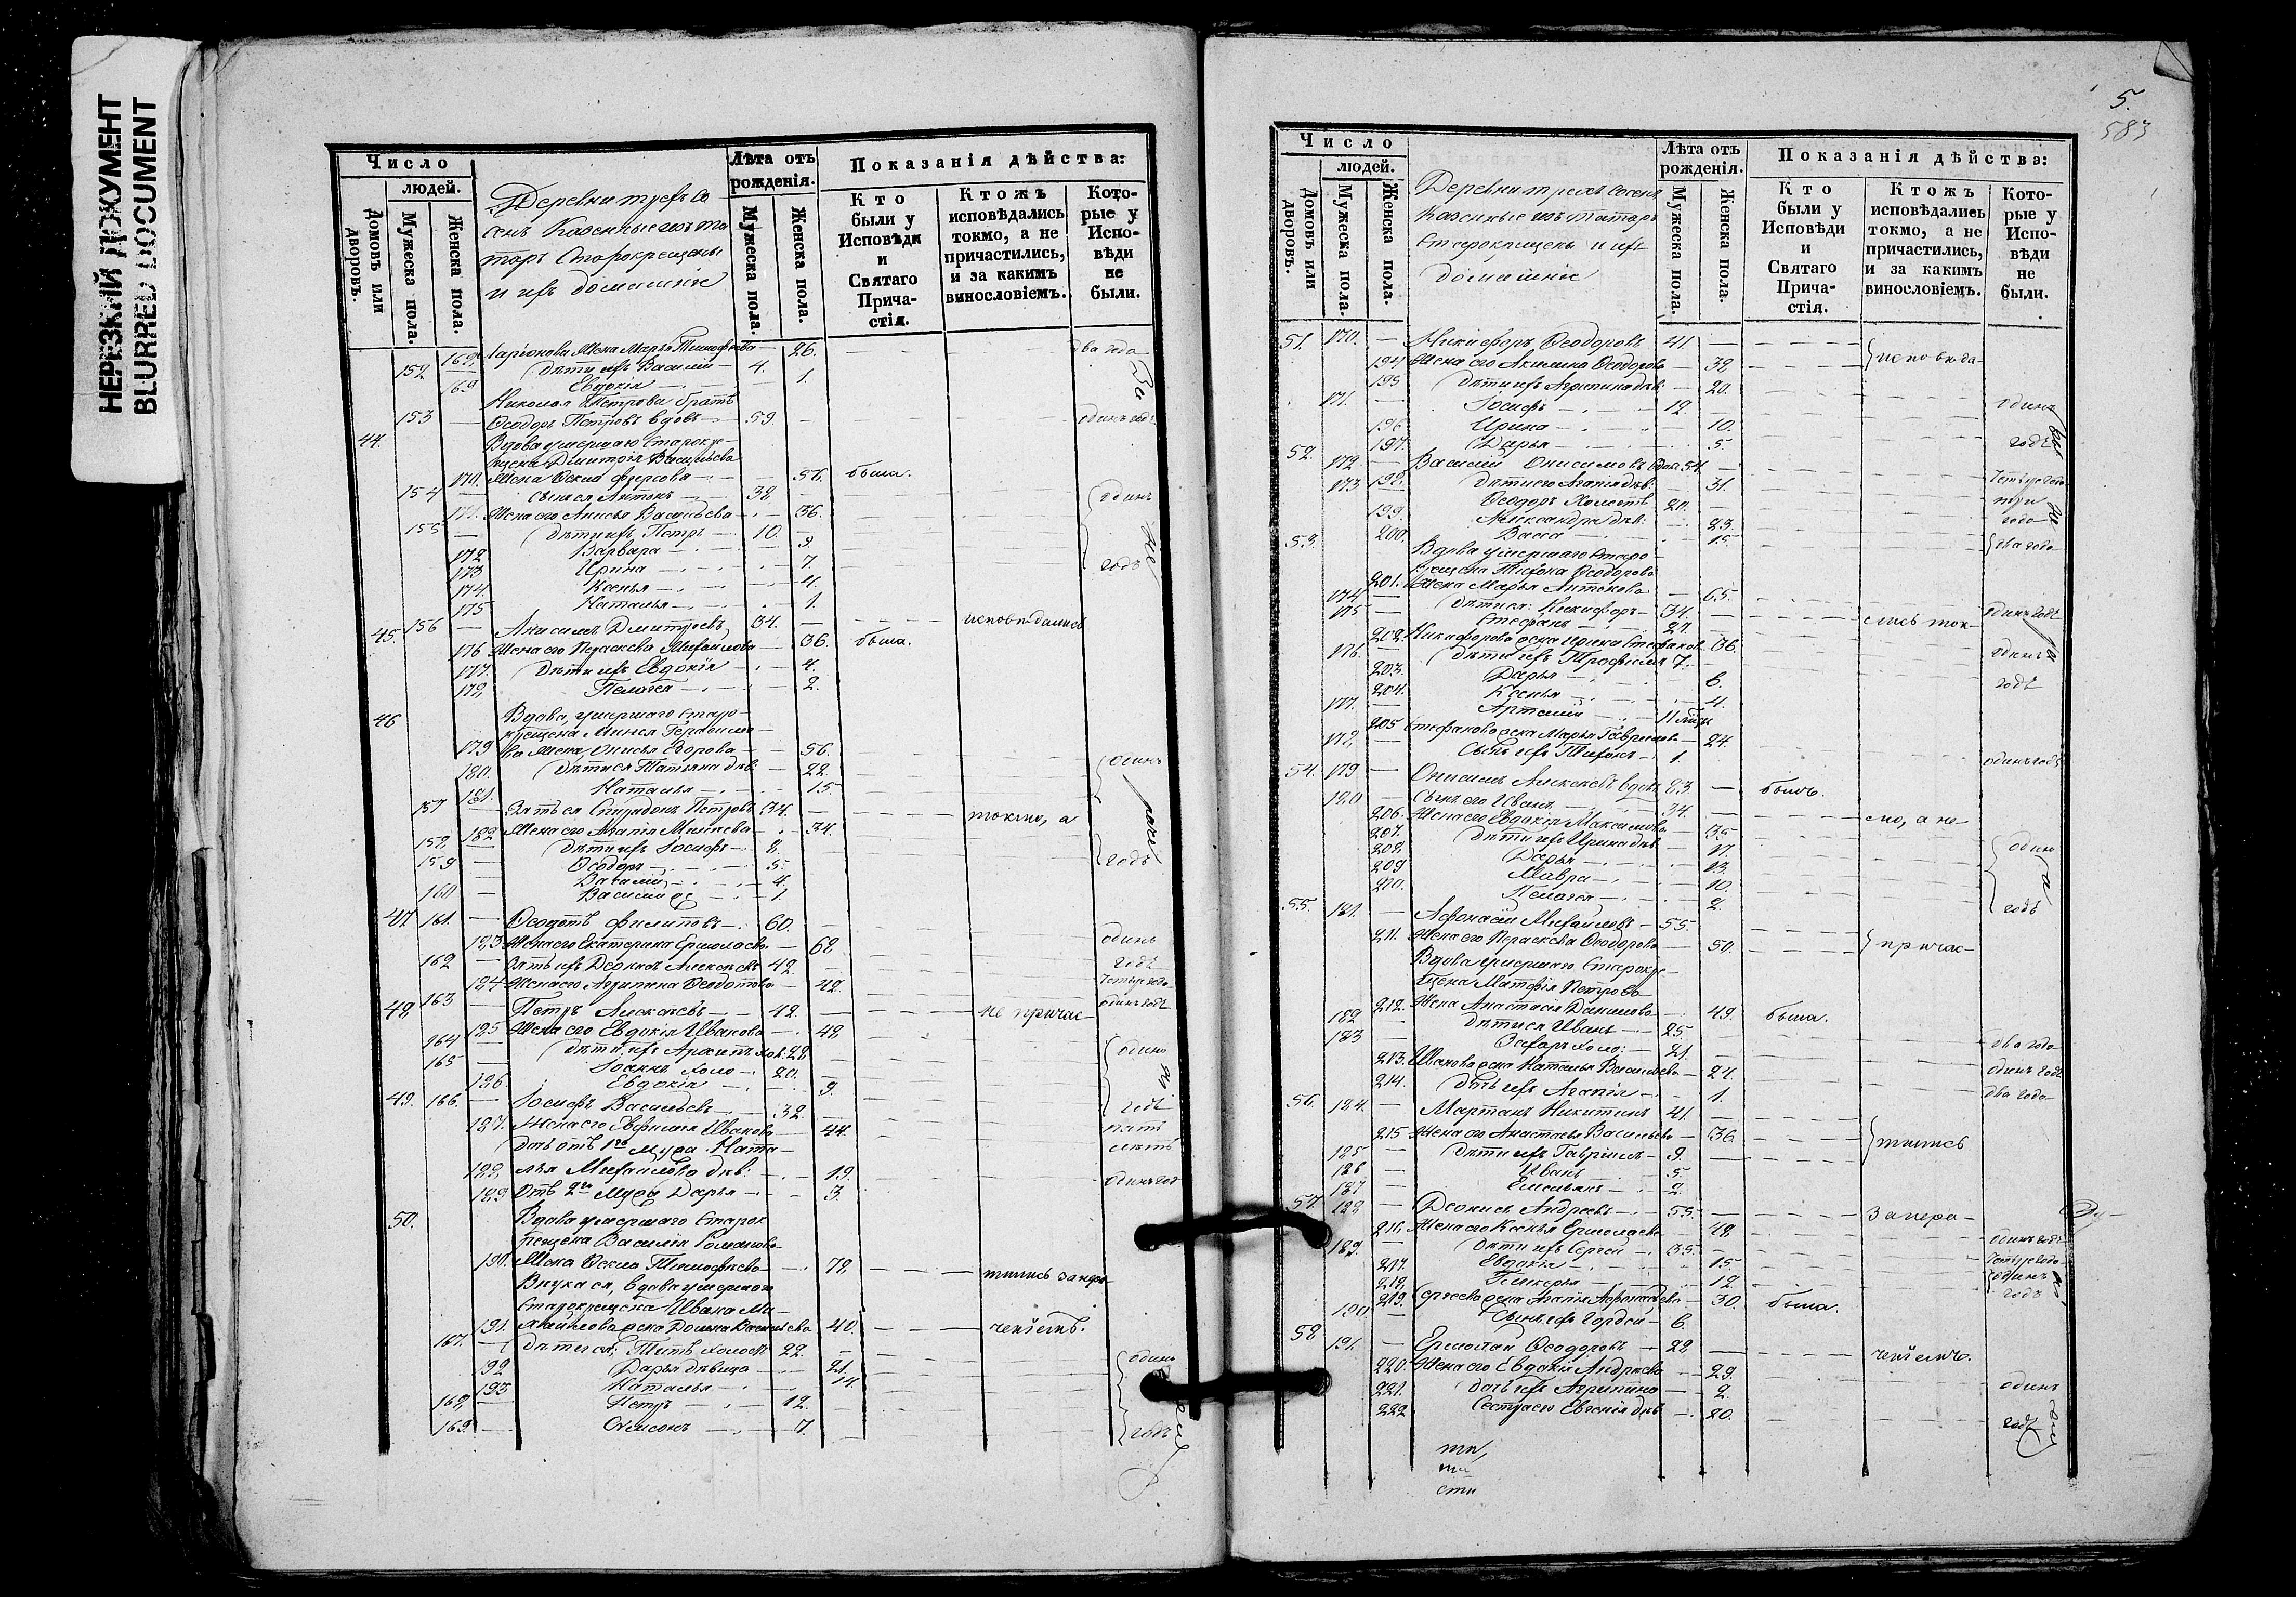 НЕРЕЗКИЙ ДОКУМЕНТ
BLURRED DOCUMENT
Число
людей.
Домовъ или дворовъ.
Мужеска пола.
Женска пола.
Деревни трехъ Со
сенъ Казенные изъ та
таръ Старокрещены
и ихъ домашніе
Лѣта отъ рожденія.
Мужеска пола.
Женска пола.
Показанія дѣйства:
Кто были у Исповѣди и Святаго Причастія.
Ктожъ исповѣдались токмо, а не причастились, и за какимъ винословіемъ.
Которые у Исповѣди не были.
Ларіонова жена Марья Тимофеева 26. два года
152 дѣти ихъ Василий 4.
169 Евдокія 1.
Николая Петрова братъ
153 Ѳеодоръ Петровъ вдовъ 59. одинъ годъ
44. Вдова умершаго Старокре-
щена Дмитрія Васильева
170. жена Ѳекла 56. была.
154 сынъ ея Антонъ 38 одинъ
171. Жена его Анисья Васильева 36.
155 дѣти ихъ Петръ 10.
172 Варвара 9.
173 Ирина 7. годъ
174. Ксенья 4.
175 Наталья 1.
45. 156 Анисимъ Дмитріевъ 34. исповѣдались
176 Жена его Параскева Михайлова 36. была.
177. дѣти ихъ Евдокія 4.
178 Пелагея 2.
46 Вдова, умершаго Старо-
крещена
179 жена Егорова 56.
180. дѣти ея Татьяна дѣв. 22. одинъ
181. Наталья 15.
157 Зять ея Спиридонъ Петровъ 34. токмо, а
182 Жена его Агапія 34.
158 дѣти ихъ Іосифъ 8.
159 Ѳеодоръ 5. годъ
160 Василій 4.
Василий 1.
47 161. Ѳеодотъ Филиповъ 60.
183 Жена его Екатерина Ермолаева 68 одинъ
162 Зять ихъ Алексѣевъ 42. годъ
184 Жена его Агрипина Ѳеодотова 42. четыре года
48 163 Петръ Алексѣевъ 42. не причас- одинъ годъ
185 Жена его Евдокія Иванова 48
164 дѣти ихъ Архипъ хол. 22. одинъ
165 Іоаннъ холо 20.
186. Евдокія 9.
49. 166. Іосифъ Васильевъ 32. годъ
187. Жена его Евфимія Иванова 44. пять
дочь отъ 1го мужа Ната- лѣтъ
188 лья Михайлова дѣв: 19.
189 Отъ 2го мужа Дарья 3. одинъ год
50. Вдова умершаго Старок
рещена Василія Романова
190. жена Ѳекла Тимофеева 78 тились за нера
Внука ея, вдова умершаго
Старокрещена Ивана Ми-
191. хайлова жена Васильева 40. ченіемъ.
167. дѣти ея, Титъ холостъ 22.
92 Дарья дѣвица 21. одинъ
193 Наталья 14.
168 Петръ 12.
169. Симеонъ 7. годъ
5.
583
Число
людей.
Домовъ или дворовъ.
Мужеска пола.
Женска пола.
Деревни трехъ Сосенъ
Казенные изъ татаръ
Старокрещены и ихъ
домашніе
Лѣта отъ рожденія.
Мужеска пола.
Женска пола.
Показанія дѣйства:
Кто были у Исповѣди и Святаго Причастія.
Ктожъ исповѣдались токмо, а не причастились, и за какимъ винословіемъ.
Которые у Исповѣди не были.
51. 170. Никифоръ Ѳеодоровъ 41
194 Жена его Акилина Ѳеодорова 38 исповѣда-
195 дѣти ихъ Агрипина дѣв. 20.
171. Іосифъ 12 одинъ
196 Ирина 10.
197. Дарья 5. годъ
52. 172. Василій Онисимовъ вдов 54.
198. дѣти его Агапія дѣв: 31. четыре года
173 Ѳеодоръ Холостъ 20. три
199. Александра дѣв. 23. года
200. Васса 15. два года
53. Вдова умершаго Старо
крещена Тихона Ѳеодорова
201. жена Марья Антонова 65.
174 дѣти ея: Никифоръ 34. одинъ годъ
175 Стефанъ 27. лись ток-
202. Никифорова жена Ирина Стефанов. 36.
176. дѣти ихъ Трофимъ 7. одинъ
203. Дарья 6. годъ
204. Ксенья 4.
177. Артемій
205 Стефанова жена Марья Гаврилова 24.
178 Сынъ ихъ Тихонъ 1. одинъ годъ
54. 179 Онисимъ Алексѣевъ вдовъ 83 былъ.
180 Сынъ его Иванъ 34.
206. Жена его Евдокія Максимова 35 мо, а не
207. дѣти ихъ Ирина дѣв. 17.
208. Дарья 13. одинъ
209 Мавра 10.
210. Пелагея 2. годъ
55. 181. Афонасій Михайловъ 55.
211. Жена его Параскева Ѳеодорова 50. причас-
Вдова умершаго Старокре-
щена Матфія Петрова
212. жена Анастасія Данилова 49. была.
182 дѣти ея Иванъ 25.
183 Захаръ холо: 21. два года
213. Иванова жена Наталья Васильева 24. одинъ годъ
214. дочь ихъ Агапія 1. два года
56. 184. Мартынъ Никитинъ 41
215 Жена его Анастасья Васильева 36. тились
185 дѣти ихъ Гавріилъ 9.
186 Иванъ 5.
187 Емельянъ 2.
57. 188 Деонисъ Андреевъ 55. за нера-
216. Жена его Ксенья Ермолаева 48
189. дѣти ихъ Сергей 35. одинъ годъ
217. Евдокія 15. четыре года
218. Гликерья 12. одинъ
219. Сергеева жена Агапія 30. была. годъ
190. Сынъ ихъ Гордей 6.
58 191. Ермолай Ѳеодоровъ 22 ченіемъ.
220. Жена его Евдокія Андреева 29.
221. дочь ихъ Агрипина 2. одинъ
222 Сестра его Евгенія дѣв 20. годъ